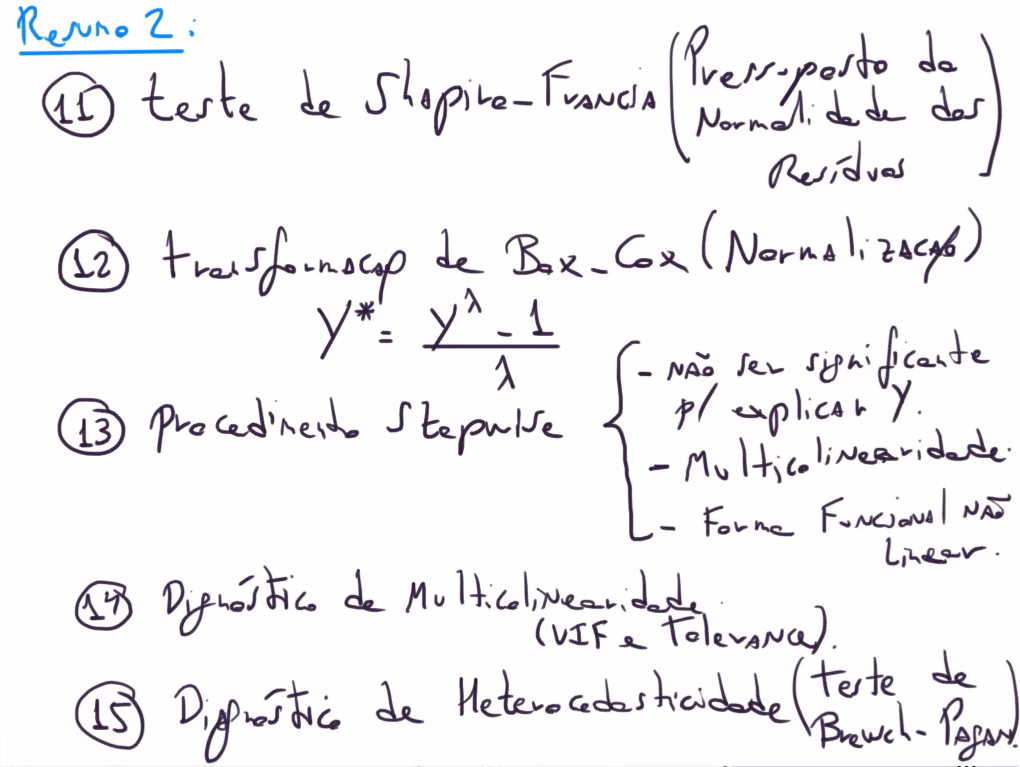 Resumo 2:
(11) teste de Shapiro-Francia (Pressuposto da
Normalidade dos
Resíduos)
(12) transformação de Box-Cox (Normalização)
Y* = (Y^λ - 1) / λ
(13) Procedimento Stepwise { - Não ser significante
p/ explicar Y.
- Multicolinearidade.
- Forma Funcional Não
Linear.
(14) Dignóstico de Multicolinearidade.
(VIF e Tolerance).
(15) Dignóstico de Heterocedasticidade (teste de
Breusch-Pagan).